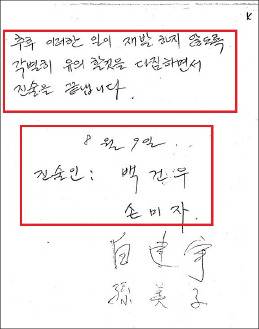 K
추후 이러한 일이 재발 하지 않도록
각별히 유의 할것을 다짐하면서
진술을 끝냅니다.
8월 9일
진술인: 백건우
손미자
白建宇
孫美子